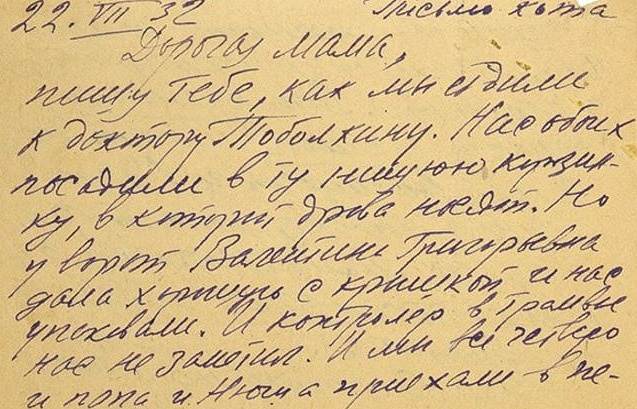 22. VII 32 Письмо кота
Дорогая мама,
пишу тебе, как мы ездили
к доктору Тоболкину. Нас обоих
посадили в ту нищую корзин-
ку, в которой дрова носят. Но
у ворот Валентина Григорьевна
дала хорошую с крышкой и нас
упаковали. И контролёр в трамвае
нас не заметил. И мы все четверо
и папа и Нюша приехали в ле-